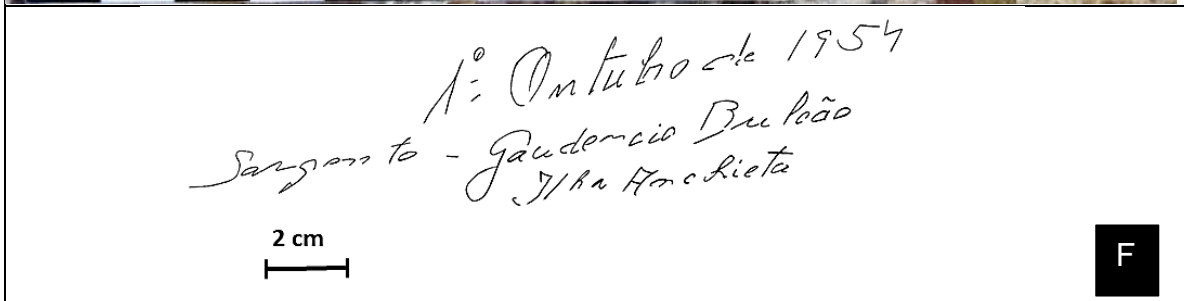 1º: Outubro de 1954
Sargento - Gaudencio Bulcão
Ilha Anchieta
2 cm
F